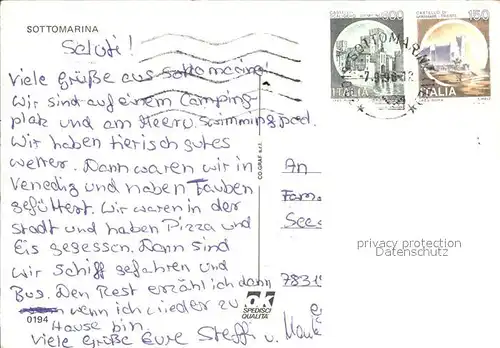 SOTTOMARINA
Saluti!
Viele Grüße aus Sottomarina!
Wir sind auf einem Camping-
platz und am Meer u. Swimmingpool.
Wir haben tierisch gutes
wetter. Dann waren wir in
Venedig und haben Tauben
gefüttert. Wir waren in der
Stadt und haben Pizza und
Eis gegessen. Dann sind
wir Schiff gefahren und
Bus. Den Rest erzähl ich dann
wenn ich wieder zu
Hause bin.
Viele Grüße Eure Steffi u.
0194
ITALIA
150
ITALIA
SOTTOMARINA
CO.GRAF s.r.l.
An
Fam.
See
7831
privacy protection
Datenschutz
ok
SPEDISCI
QUALITA'